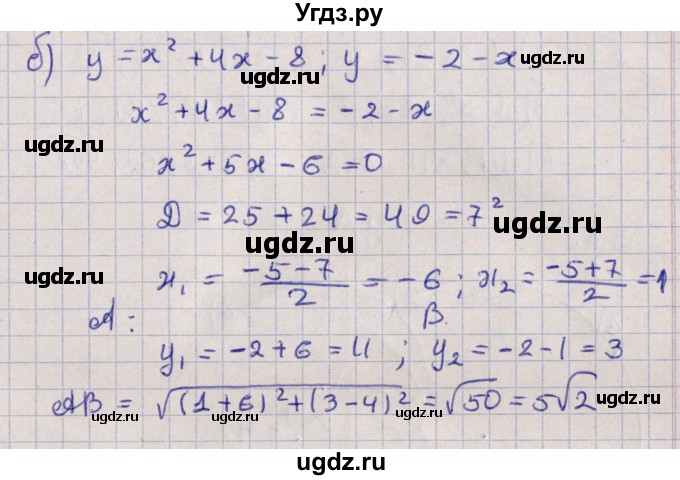 Угдз.ру
б) y = x² + 4x - 8; y = -2 - x
ugdz.ru ugdz.ru
x² + 4x - 8 = -2 - x
ugdz.ru ugdz.ru
x² + 5x - 6 = 0
Д = 25 + 24 = 49 = 7²
ugdz.ru ugdz.ru
ugdz.ru ugdz.ru
x₁ = (-5-7)/2 = -6; x₂ = (-5+7)/2 = 1
A: B.
y₁ = -2+6 = 4; y₂ = -2-1 = 3
AB = √((1+6)²+(3-4)²) = √50 = 5√2
ugdz.ru ugdz.ru ugdz.ru
ugdz.ru